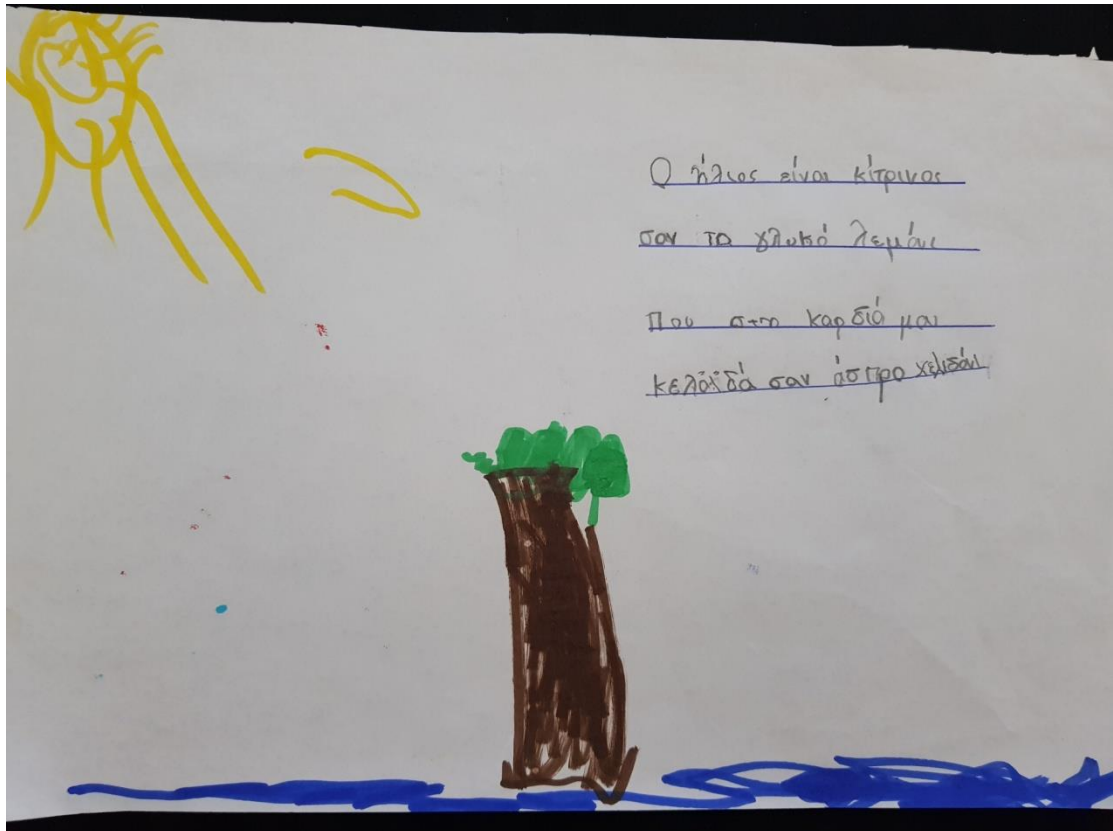 Ο ήλιος είναι κίτρινος
σαν το γλυκό λεμόνι
Που στη καρδιά μου
κελαϊδά σαν άσπρο χελιδόνι